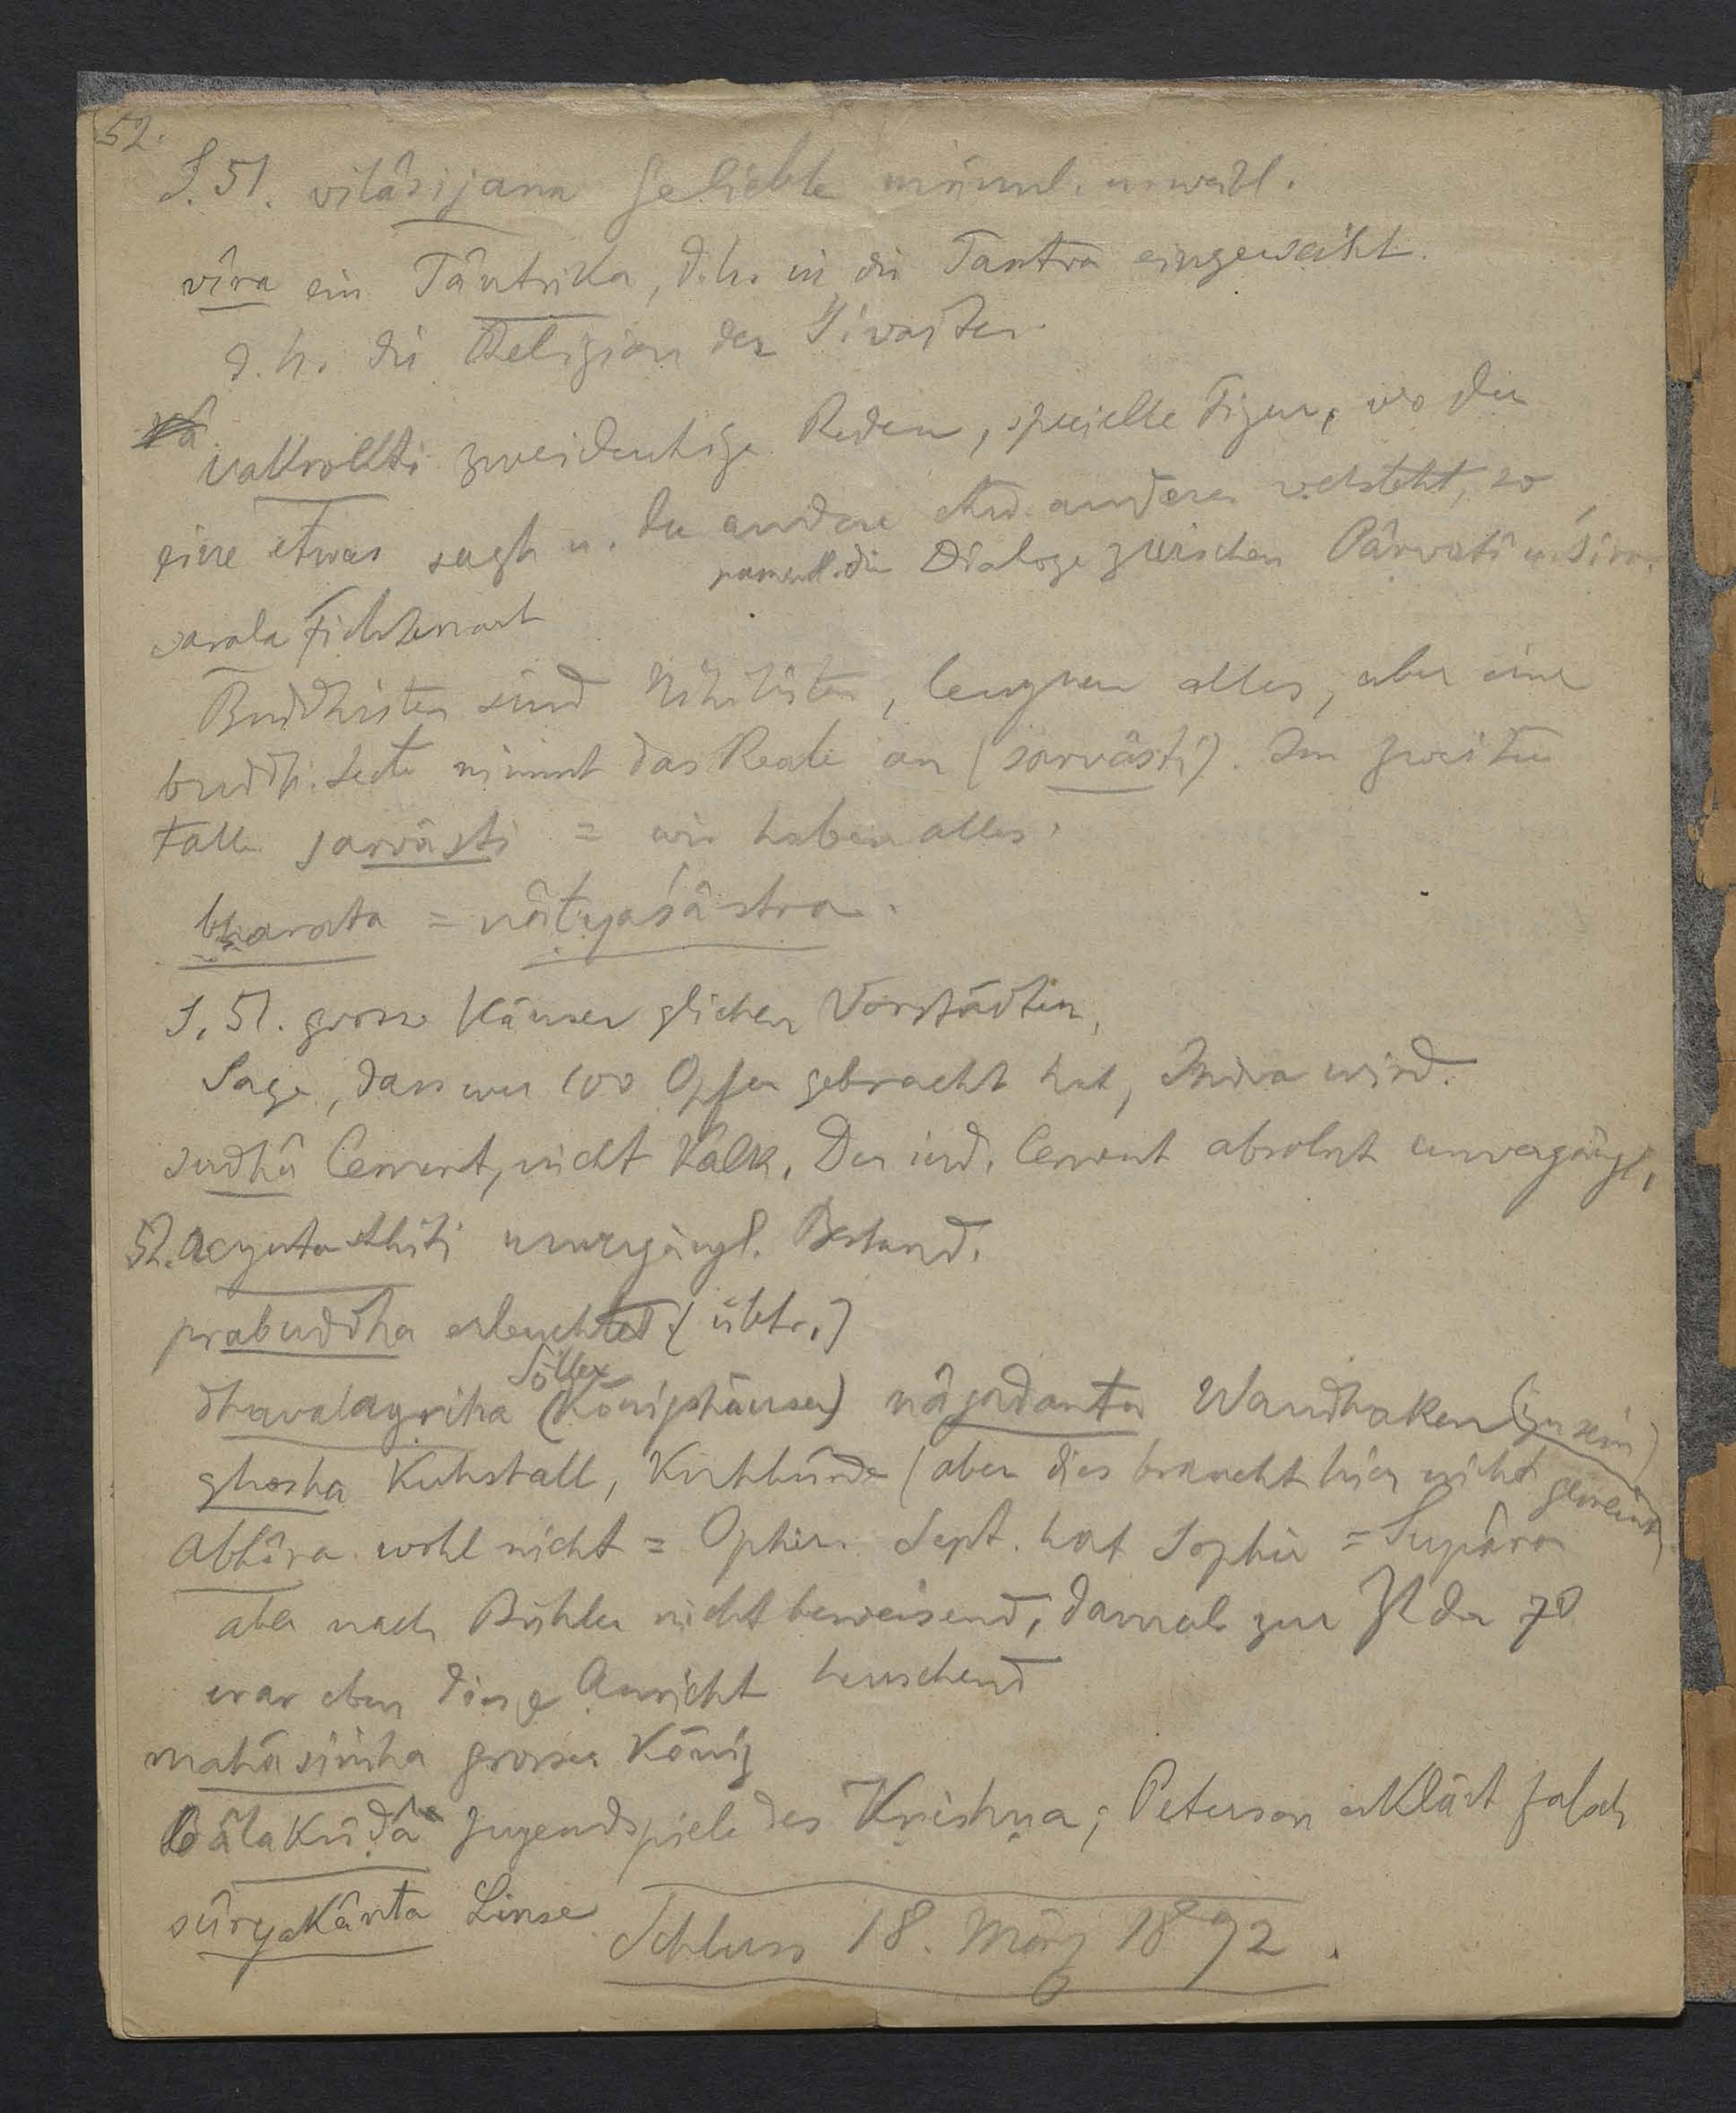 52.
S. 51. vilâsijana Geliebte männl. u. weibl.
vîra ein Tântrika, d.h. in die Tantra eingeweiht.
d. h. die Religion der Śivaiten.
vakrokti zweideutige Reden, specielle Figur, wo der
eine etwas sagt u. der andere etw. anderes versteht, so
namentl. die Dialoge zwischen Pârvatî u. Śiva.
sarala Fichtenart
Buddhisten sind Nihilisten, leugnen alles, aber eine
buddh. Secte nimmt das Reale an (sarvâsti). Im zweiten
Falle sarvâsti = wir haben alles.
bharata = nâṭyaśâstra.
S. 51. grosse Häuser glichen Vorstädten,
Sage, dass wer 100 Opfer gebracht hat, Indra wird.
sudhâ Cement, nicht Kalk. Der ind. Cement absolut unvergängl.
52. acyutasthiti unvergängl. Bestand.
prabuddha erleuchtet (übtr.)
Söller
dhavalagriha (Königshäuser) nâgadanta Wandhaken (zu sein)
ghosha Kuhstall, Kuhhürde (aber dies braucht hier nicht gemeint
Abhîra wohl nicht = Ophir. Sept. hat Sophir = Supâra
aber nach Bühler nicht beweisend, damals zur Zt der 70
war eben diese Ansicht herrschend
mahâsiṁha grosser König
bâlakrîḍâ Jugendspiele des Krishṇa; Peterson erklärt falsch
sûryakânta Linse
Schluss 18. März 1892.